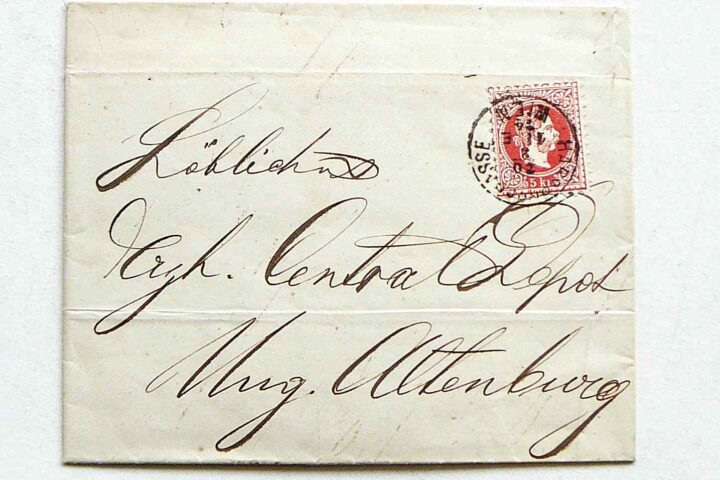 Löbliches
erzh. Central Depot
Ung. Altenburg
5 kr
WIEN